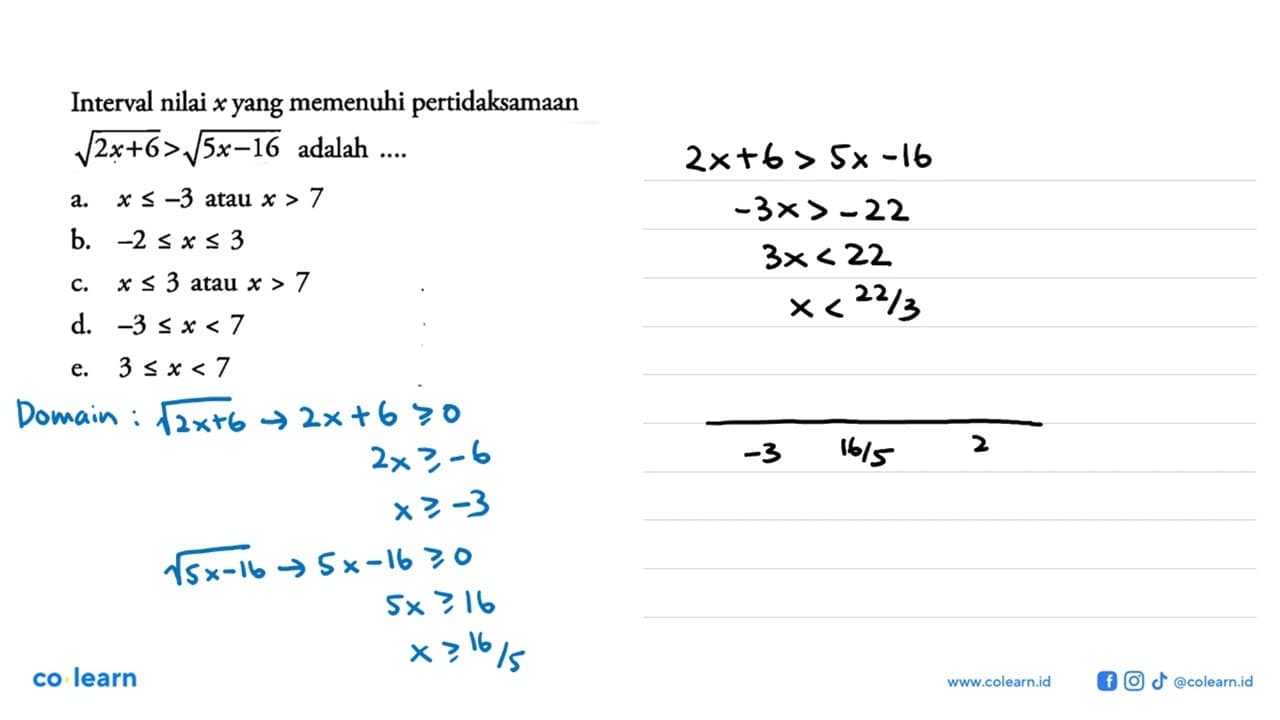 Interval nilai x yang memenuhi pertidaksamaan
√(2x+6) > √(5x−16) adalah ....
a. x ≤ −3 atau x > 7
b. −2 ≤ x ≤ 3
c. x ≤ 3 atau x > 7
d. −3 ≤ x < 7
e. 3 ≤ x < 7
Domain : √(2x+6) → 2x + 6 ≥ 0
2x ≥ −6
x ≥ −3
√(5x−16) → 5x − 16 ≥ 0
5x ≥ 16
x ≥ 16/5
2x + 6 > 5x − 16
−3x > −22
3x < 22
x < 22/3
−3 16/5 2
co learn
www.colearn.id @colearn.id